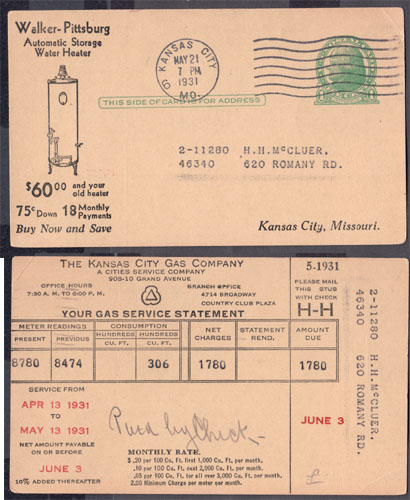 Walker-Pittsburg
Automatic Storage
Water Heater
$60.00 and your
old heater
75¢ Down 18 Monthly
Payments
Buy Now and Save
KANSAS CITY
MAY 21
7 PM
1931
MO.
THIS SIDE OF CARD IS FOR ADDRESS
2-11280 H.H.McCLUER,
46340 620 ROMANY RD.
Kansas City, Missouri.
THE KANSAS CITY GAS COMPANY
A CITIES SERVICE COMPANY
909-10 GRAND AVENUE
OFFICE HOURS
7:30 A.M. TO 6:00 P.M.
BRANCH OFFICE
4714 BROADWAY
COUNTRY CLUB PLAZA
YOUR GAS SERVICE STATEMENT
METER READINGS CONSUMPTION NET CHARGES STATEMENT REND. AMOUNT DUE
PRESENT PREVIOUS HUNDREDS CU. FT. HUNDREDS CU. FT.
8780 8474 306 1780 1780
SERVICE FROM
APR 13 1931
TO
MAY 13 1931
NET AMOUNT PAYABLE
ON OR BEFORE
JUNE 3
10% ADDED THEREAFTER
Paid by Check
MONTHLY RATE
$ .20 per 100 Cu. Ft. first 1,000 Cu. Ft. per month.
.10 per 100 Cu. Ft. next 2,000 Cu. Ft. per month.
.05 per 100 Cu. Ft. all over 3,000 Cu. Ft. per month.
2.00 Minimum Charges per meter per month.
5-1931
PLEASE MAIL
THIS STUB
WITH CHECK
H-H
JUNE 3
2-11280 H.H.McCLUER,
46340 620 ROMANY RD.